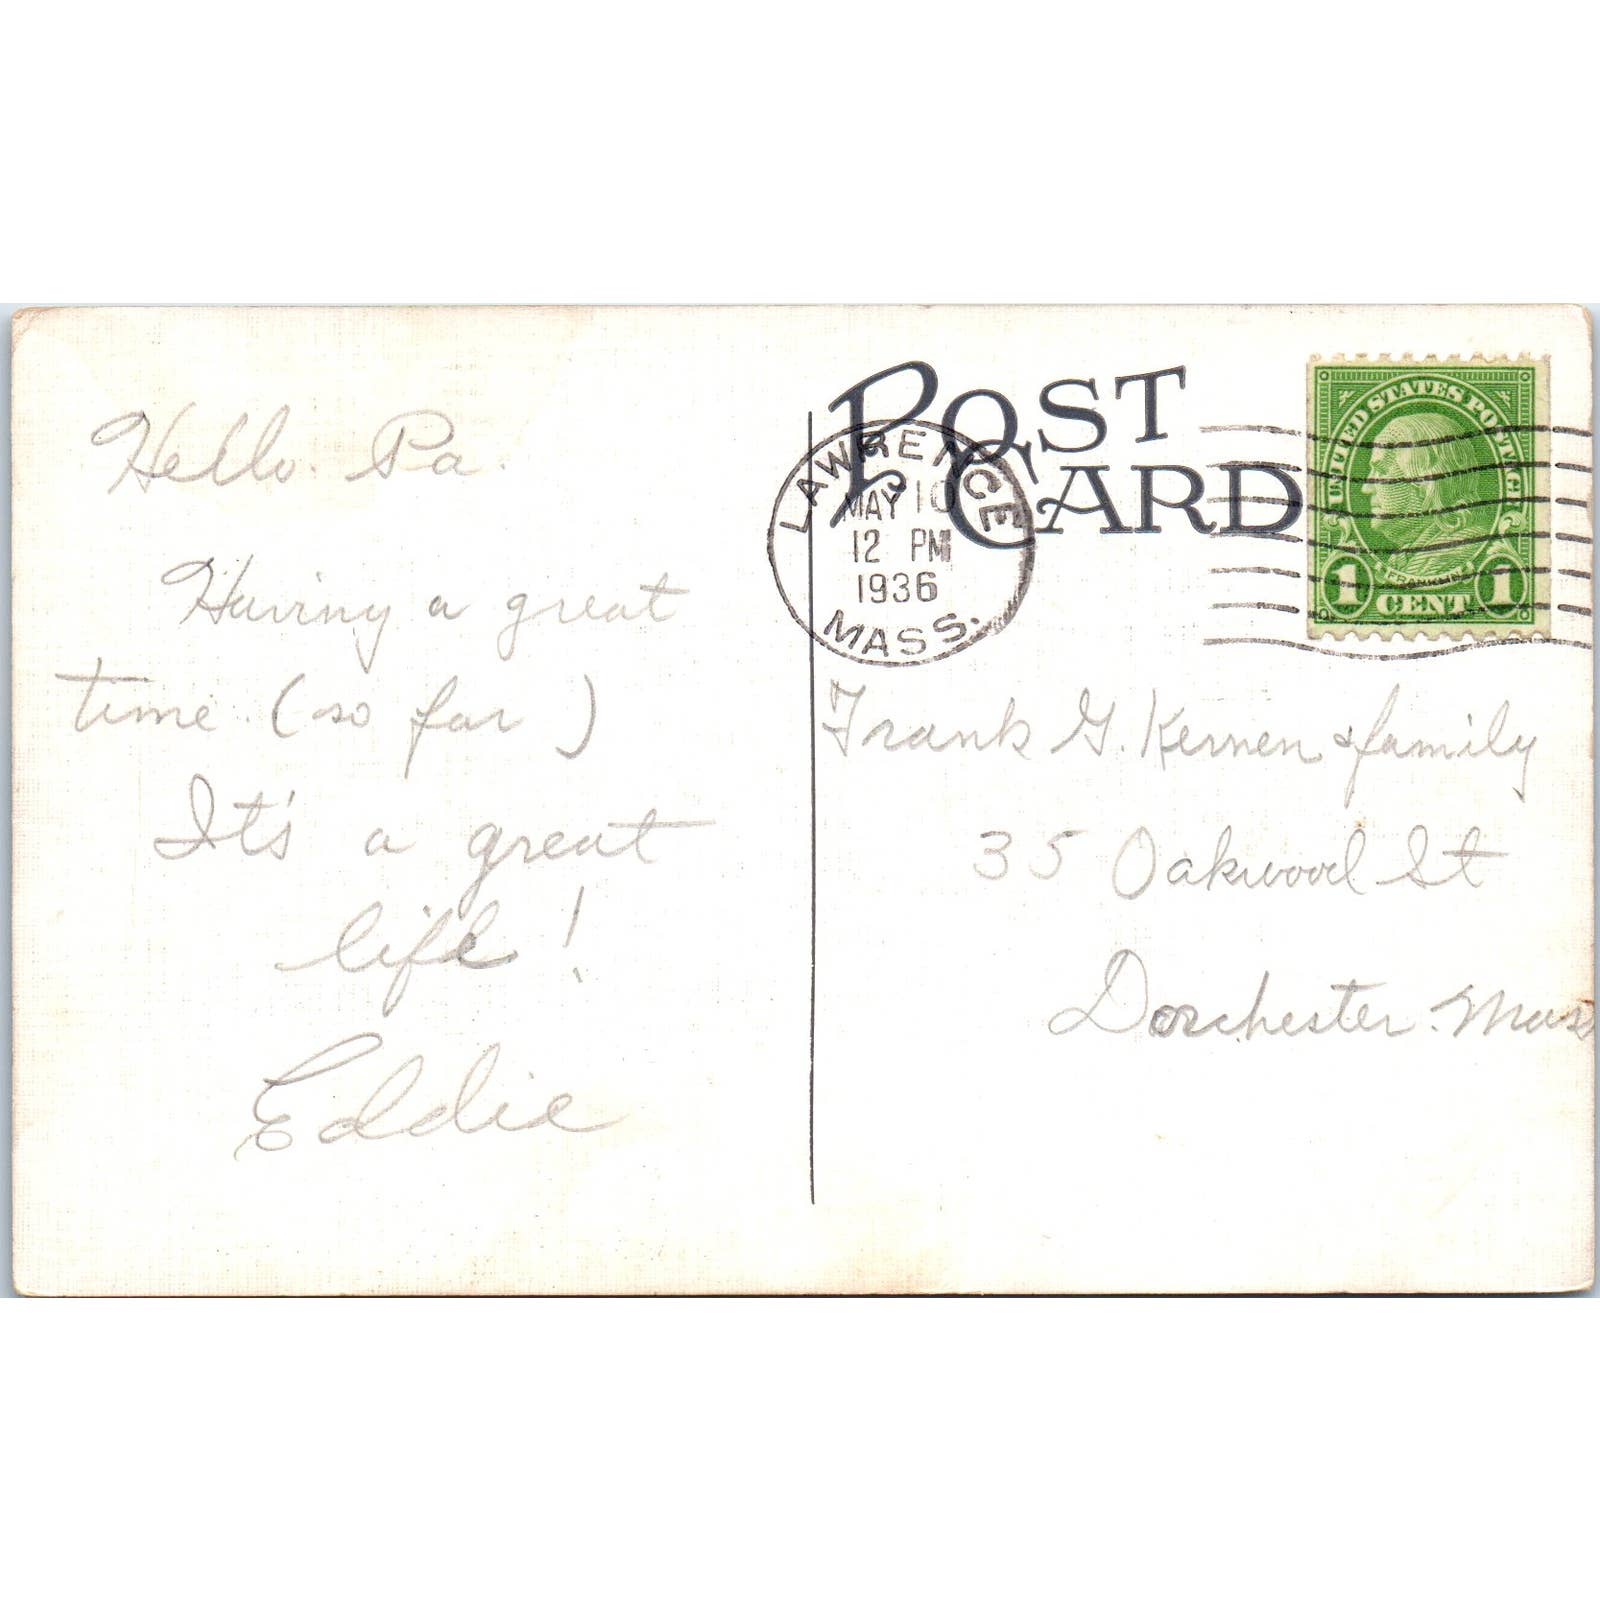 Hello. Pa.
Having a great
time. (so far)
It's a great
life!
Eddie
POST
CARD
LAWRENCE
MAY 10
12 PM
1936
MASS.
UNITED STATES POSTAGE
FRANKLIN
1 CENT 1
Frank G. Kernen & family
35 Oakwood St
Dorchester. Mass